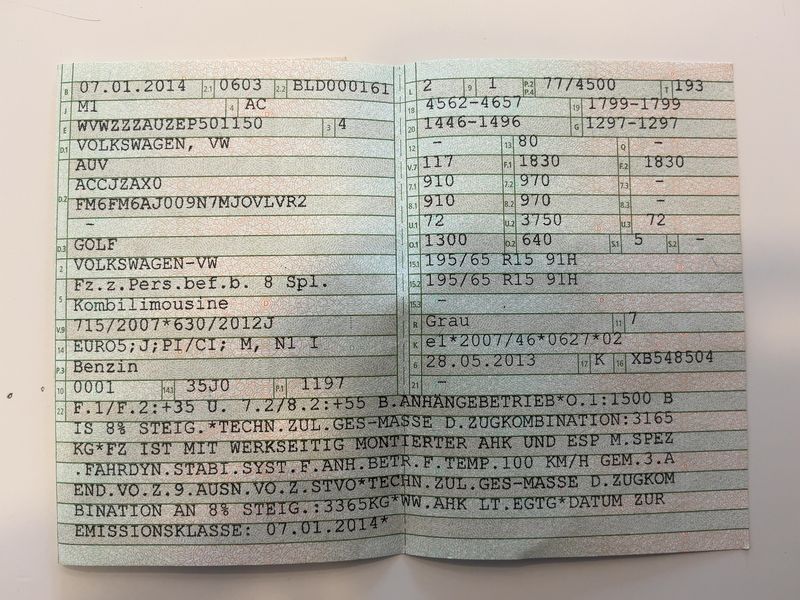 B 07.01.2014 2.1 0603 2.2 BLD000161
J M1 4 AC
E WVWZZZAUZEP501150 3 4
D.1 VOLKSWAGEN, VW
AUV
D.2 ACCJZAX0
FM6FM6AJ009N7MJOVLVR2
–
D.3 GOLF
2 VOLKSWAGEN-VW
5 Fz.z.Pers.bef.b. 8 Spl.
Kombilimousine
V.9 715/2007*630/2012J
14 EURO5;J;PI/CI; M, N1 I
P.3 Benzin
10 0001 14.1 35J0 P.1 1197
L 2 9 1 P.2 P.4 77/4500 T 193
18 4562-4657 19 1799-1799
20 1446-1496 G 1297-1297
12 – 13 80 Q –
V.7 117 F.1 1830 F.2 1830
7.1 910 7.2 970 7.3 –
8.1 910 8.2 970 8.3 –
U.1 72 U.2 3750 U.3 72
O.1 1300 O.2 640 S.1 5 S.2 –
15.1 195/65 R15 91H
15.2 195/65 R15 91H
15.3 –
R Grau 11 7
K e1*2007/46*0627*02
6 28.05.2013 17 K 16 XB548504
21 –
22 F.1/F.2:+35 U. 7.2/8.2:+55 B.ANHÄNGEBETRIEB*O.1:1500 B
IS 8% STEIG.*TECHN.ZUL.GES-MASSE D.ZUGKOMBINATION:3165
KG*FZ IST MIT WERKSEITIG MONTIERTER AHK UND ESP M.SPEZ
.FAHRDYN.STABI.SYST.F.ANH.BETR.F.TEMP.100 KM/H GEM.3.A
END.VO.Z.9.AUSN.VO.Z.STVO*TECHN.ZUL.GES-MASSE D.ZUGKOM
BINATION AN 8% STEIG.:3365KG*WW.AHK LT.EGTG*DATUM ZUR
EMISSIONSKLASSE: 07.01.2014*